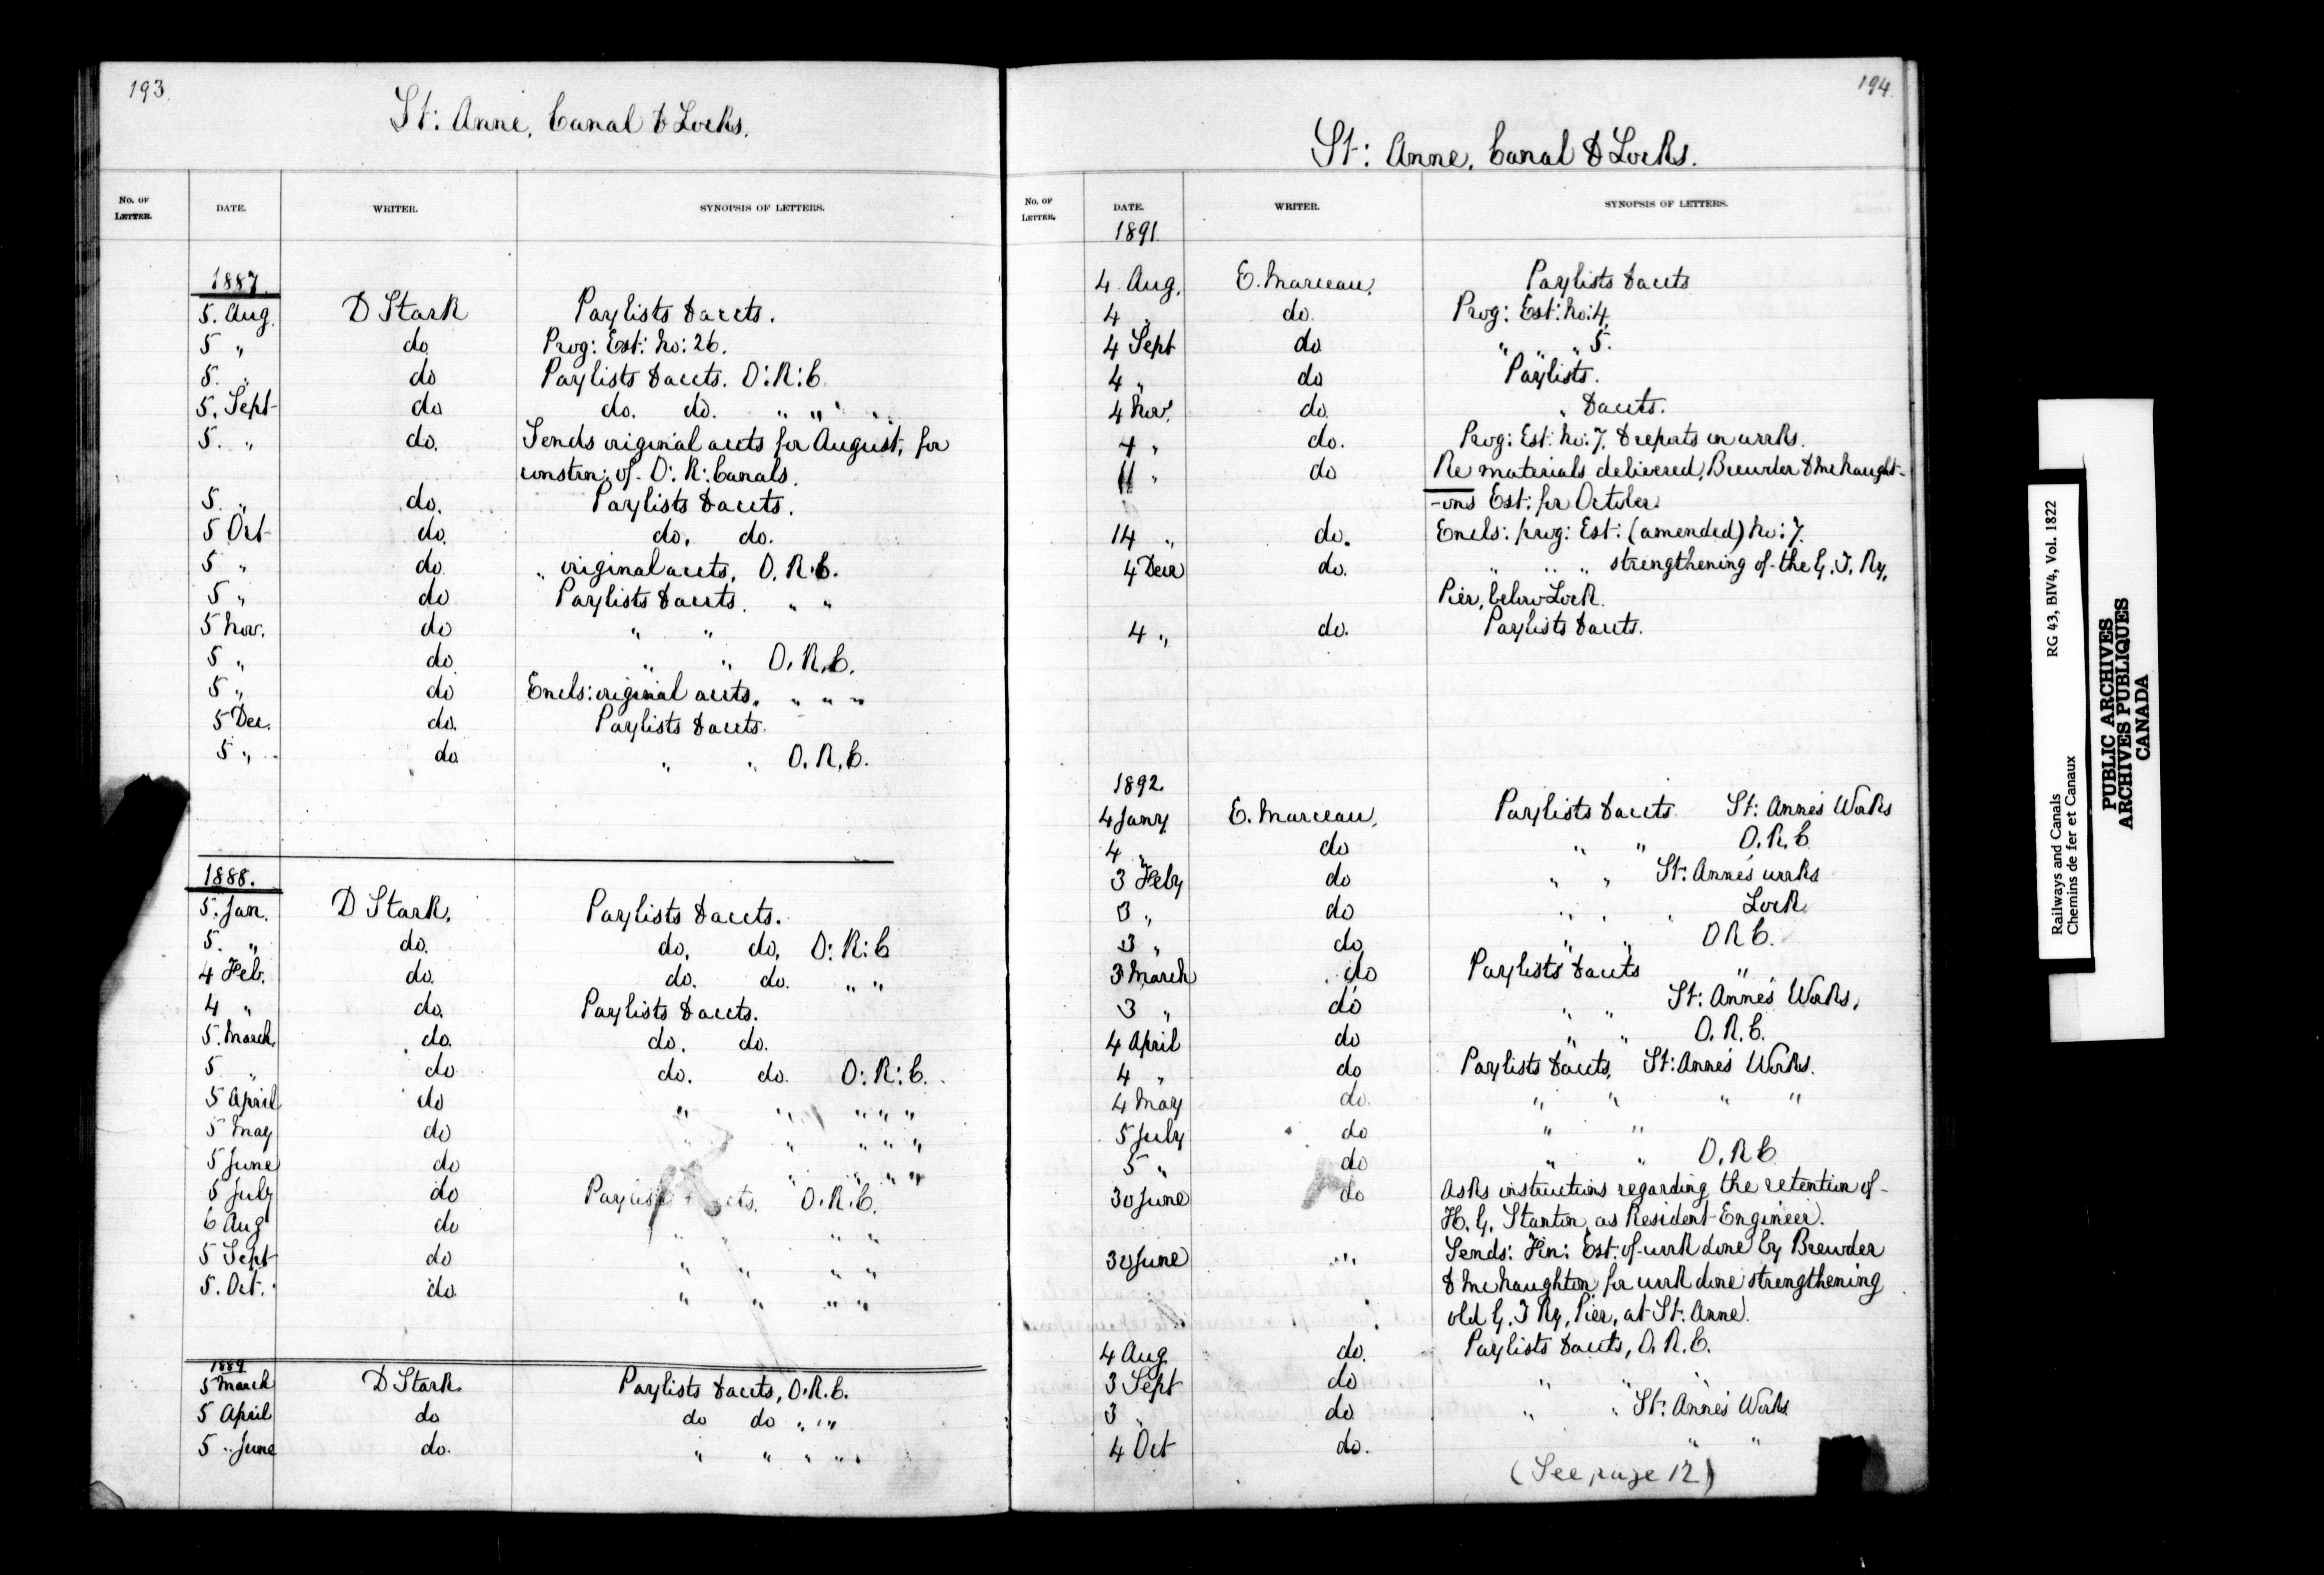 193.
St: Anne, Canal & Locks.
No. OF LETTER. DATE. WRITER. SYNOPSIS OF LETTERS.
1887.
5. Aug. D Stark Paylists & accts.
5 " do Prog: Est: No: 26.
5. " do Paylists & accts. O: R: C.
5. Sept do do. do. " " "
5. " do. Sends original accts for August, for
constrn: of O: R: Canals.
5. " do. Paylists & accts.
5 Oct do. do. do.
5 " do. " original accts, O. R. C.
5 " do Paylists & accts. " "
5 Nov. do " "
5 " do " " O. R. C.
5 " do Encls: original accts, " " "
5 Dec. do. Paylists & accts.
5 " do. " " O. R. C.
1888.
5. Jan. D Stark, Paylists & accts.
5. " do. do, do, O: R: C
4 Feb. do. do. do. " "
4 " do. Paylists & accts.
5. March. do. do. do.
5 " do. do. do. O: R: C.
5 April do " " " " "
5 May do " " " " "
5 June do " " " "
5 July do Paylists & accts, O. R. C.
6 Aug do " " " "
5 Sept do " " " "
5. Oct. do. " " " "
1889
5 March D Stark. Paylists & accts, O. R. C.
5 April do do do " " "
5 " June do. " " " " "
194.
St: Anne, Canal & Locks.
No. OF LETTER. DATE. WRITER. SYNOPSIS OF LETTERS.
1891.
4 Aug. E. Marceau, Paylists & accts
4 " do. Prog: Est: No: 4.
4 Sept do " " " 5.
4 " do Paylists.
4 Nov. do. " & accts.
4 " do. Prog: Est: No: 7, & reports on works.
11 " do Re materials delivered, Brewder & McNaught-
-ons Est: for October.
14 " do. Encls: prog: Est: (amended) No: 7.
4 Decr do. " " " strengthening of the G. T. Ry,
Pier, below Lock.
4 " do. Paylists & accts.
1892.
4 Jany E. Marceau, Paylists & accts St: Anne's Works
4 " do " " O. R. C
3 Feby do " " St: Anne's works
3 " do " " " Lock
3 " do " " O R C.
3 March do Paylists & accts "
3 " do " " St: Anne's Works,
4 April do " " O. R. C.
4 " do Paylists & accts, St: Anne's Works.
4 May do. " " " "
5 July do " "
5 " do " " O. R C
30 June do Asks instructions regarding the retention of
H. G. Stanton, as Resident Engineer.
30 June " Sends: Fin: Est: of work done by Brewder
& McNaughton, for work done strengthening
old G. T Ry, Pier, at St: Anne.
4 Aug do. Paylists & accts, O. R. C.
3 Sept do " " "
3 " do " " St: Anne's Works
4 Oct do. " "
(See page 12)
Railways and Canals RG 43, BIV4, Vol. 1822
Chemins de fer et Canaux
PUBLIC ARCHIVES
ARCHIVES PUBLIQUES
CANADA